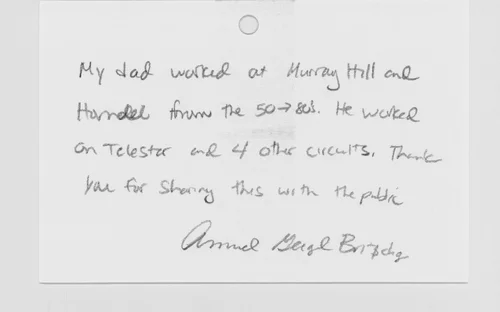 My dad worked at Murray Hill and
Holmdel from the 50→80s. He worked
on Telestar and 4 other circuits. Thank
you for sharing this with the public